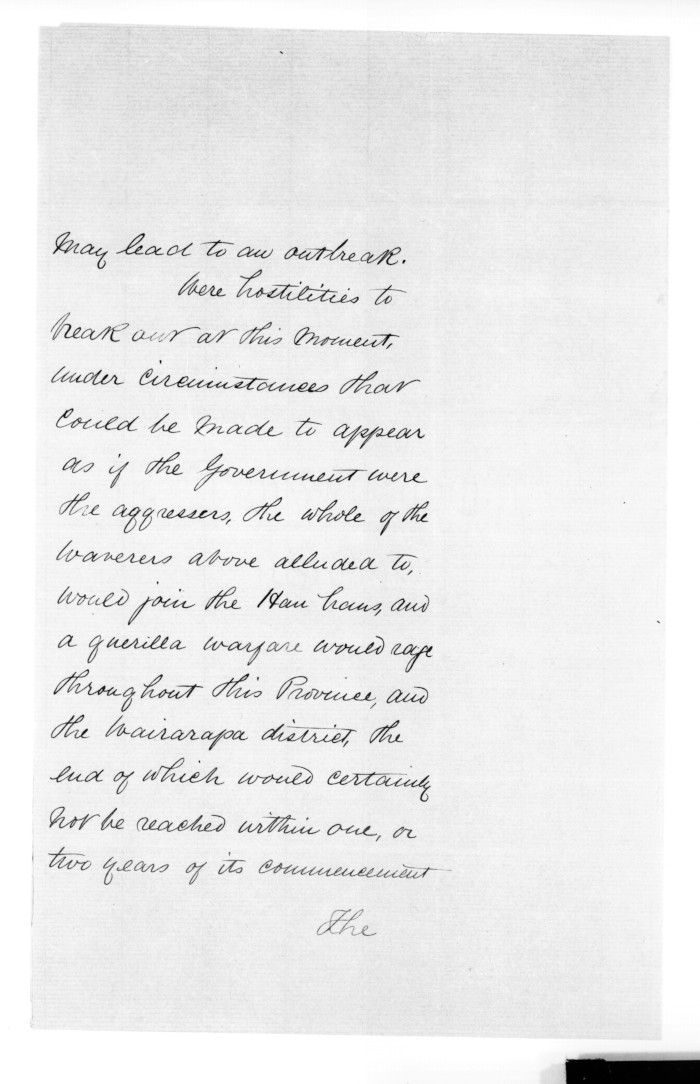 May lead to an outbreak.
Were hostilities to
break out at this Moment,
under Circumstances that
Could be Made to appear
as if the Government were
the aggressers, the whole of the
Waverers above alluded to,
would join the Hau haus, and
a guerilla warfare would rage
throughout this Province, and
the Wairarapa district, the
end of which would certainly
not be reached within one, or
two years of its commencement
The